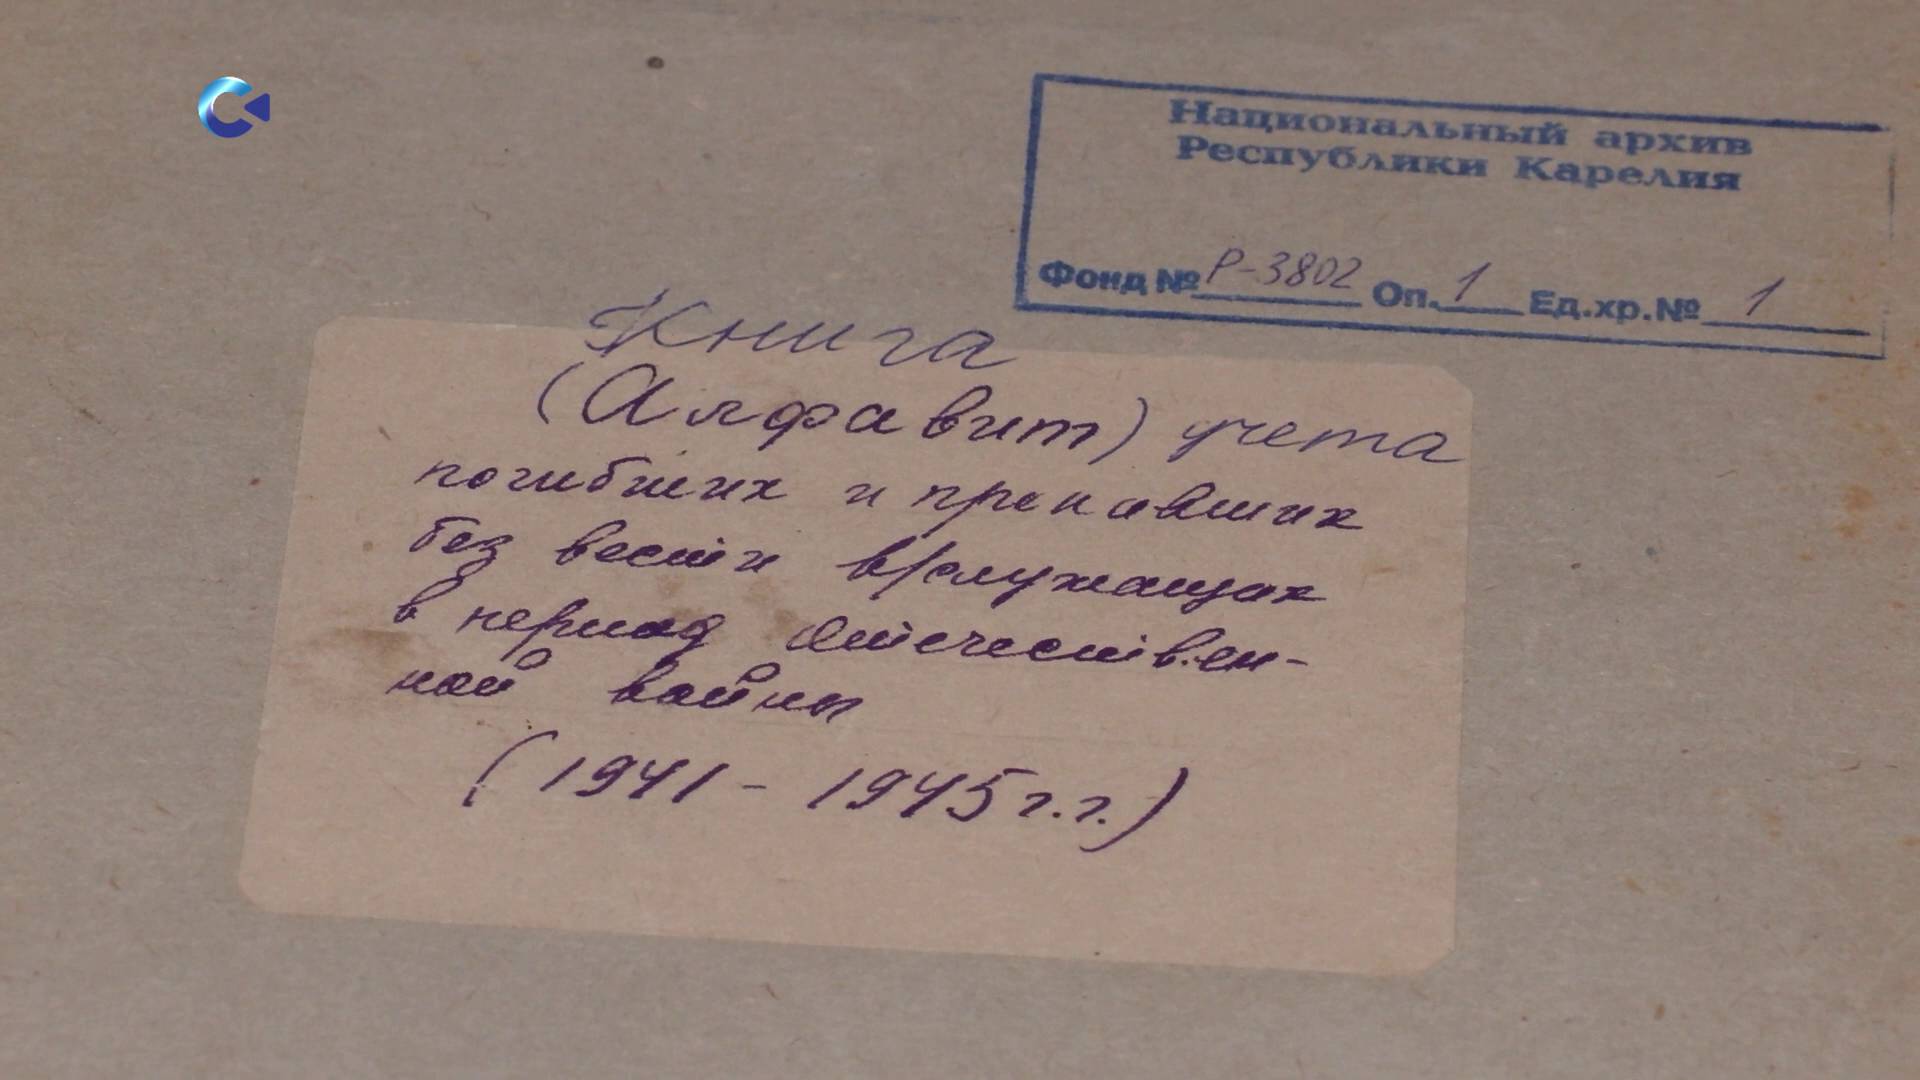 Национальный архив
Республики Карелия
Фонд № Р-3802 Оп. 1 Ед.хр.№ 1
Книга
(Алфавит) учета
погибших и пропавших
без вести в/служащих
в период Отечествен-
ной войны
(1941 - 1945 г.г.)